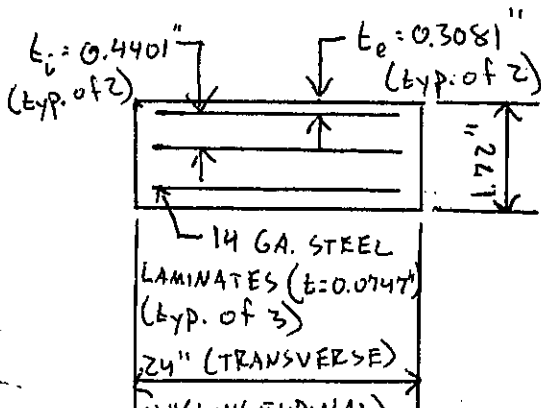 ti = 0.4401"
(typ. of 2)
te = 0.3081"
(typ. of 2)
14 GA. STEEL
LAMINATES (t=0.0747")
(typ. of 3)
24" (TRANSVERSE)